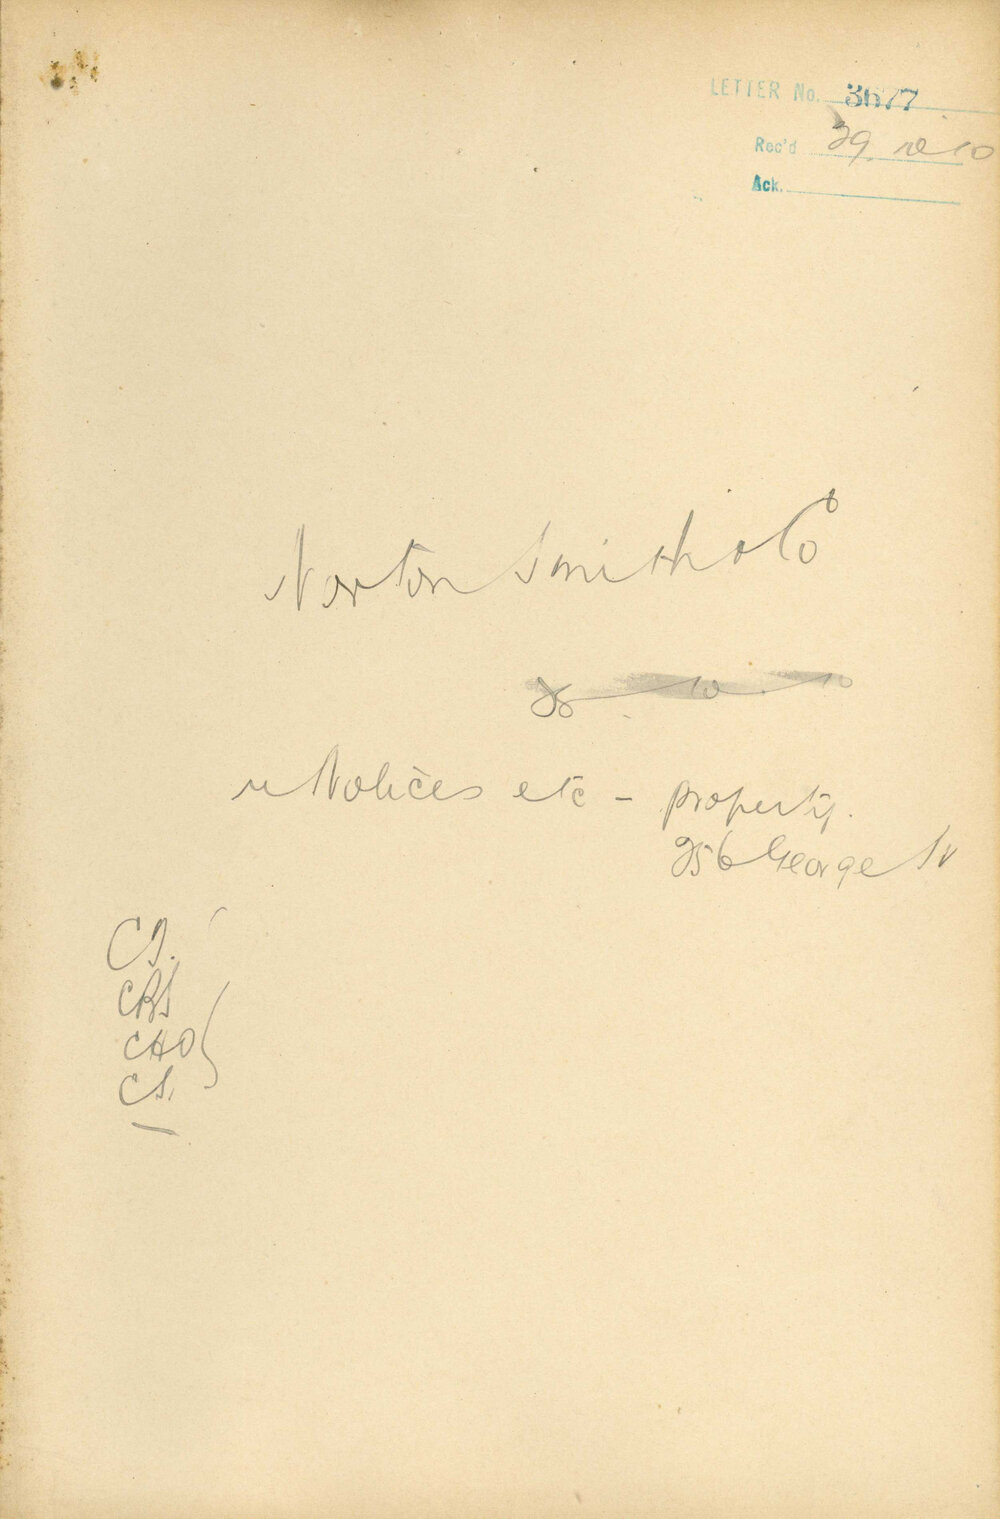 LETTER No. 3677
Rec'd 29. 10 10
Ack.
Norton Smith & Co
28 . 10 . 10
re Notices etc - property.
256 George St
CS.
CHO
CS.